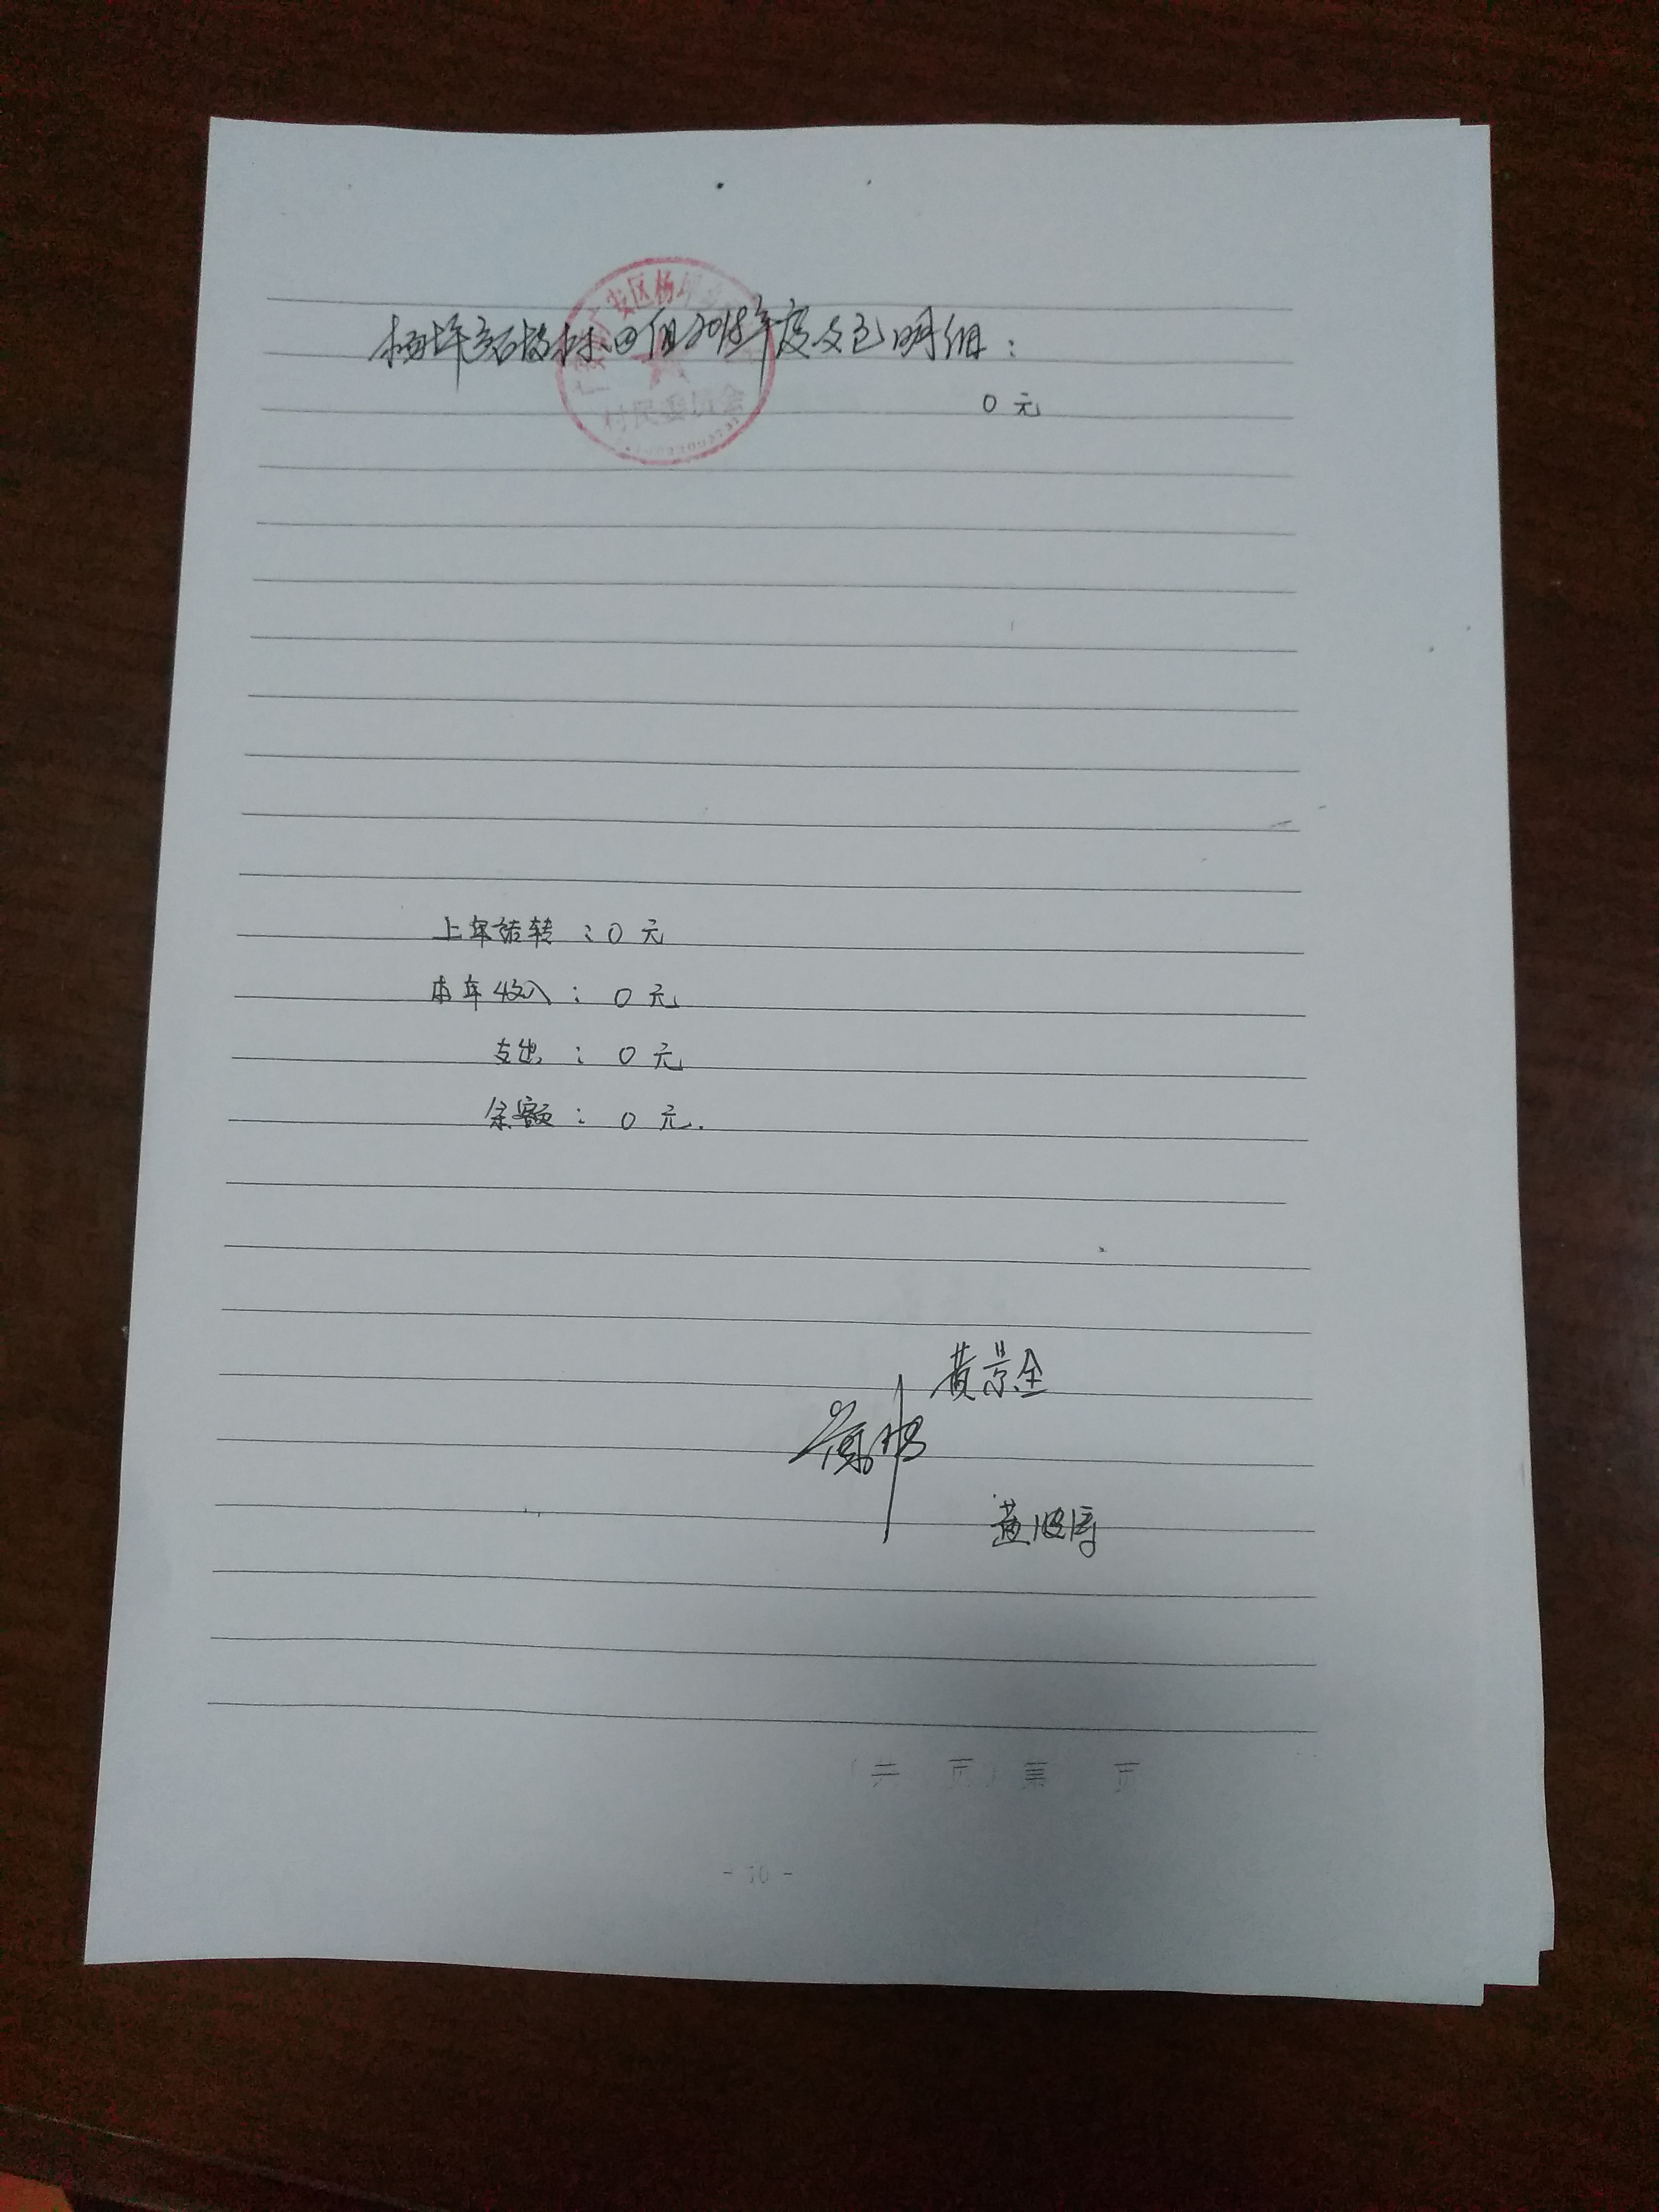 广安区杨坪
村民委员会
杨坪乡石坡村四组2018年度支出明细：
0元
上年结转：0元
本年收入：0元
支出：0元
余额：0元.
黄景全
黄
（共 页）第 页
- 10 -